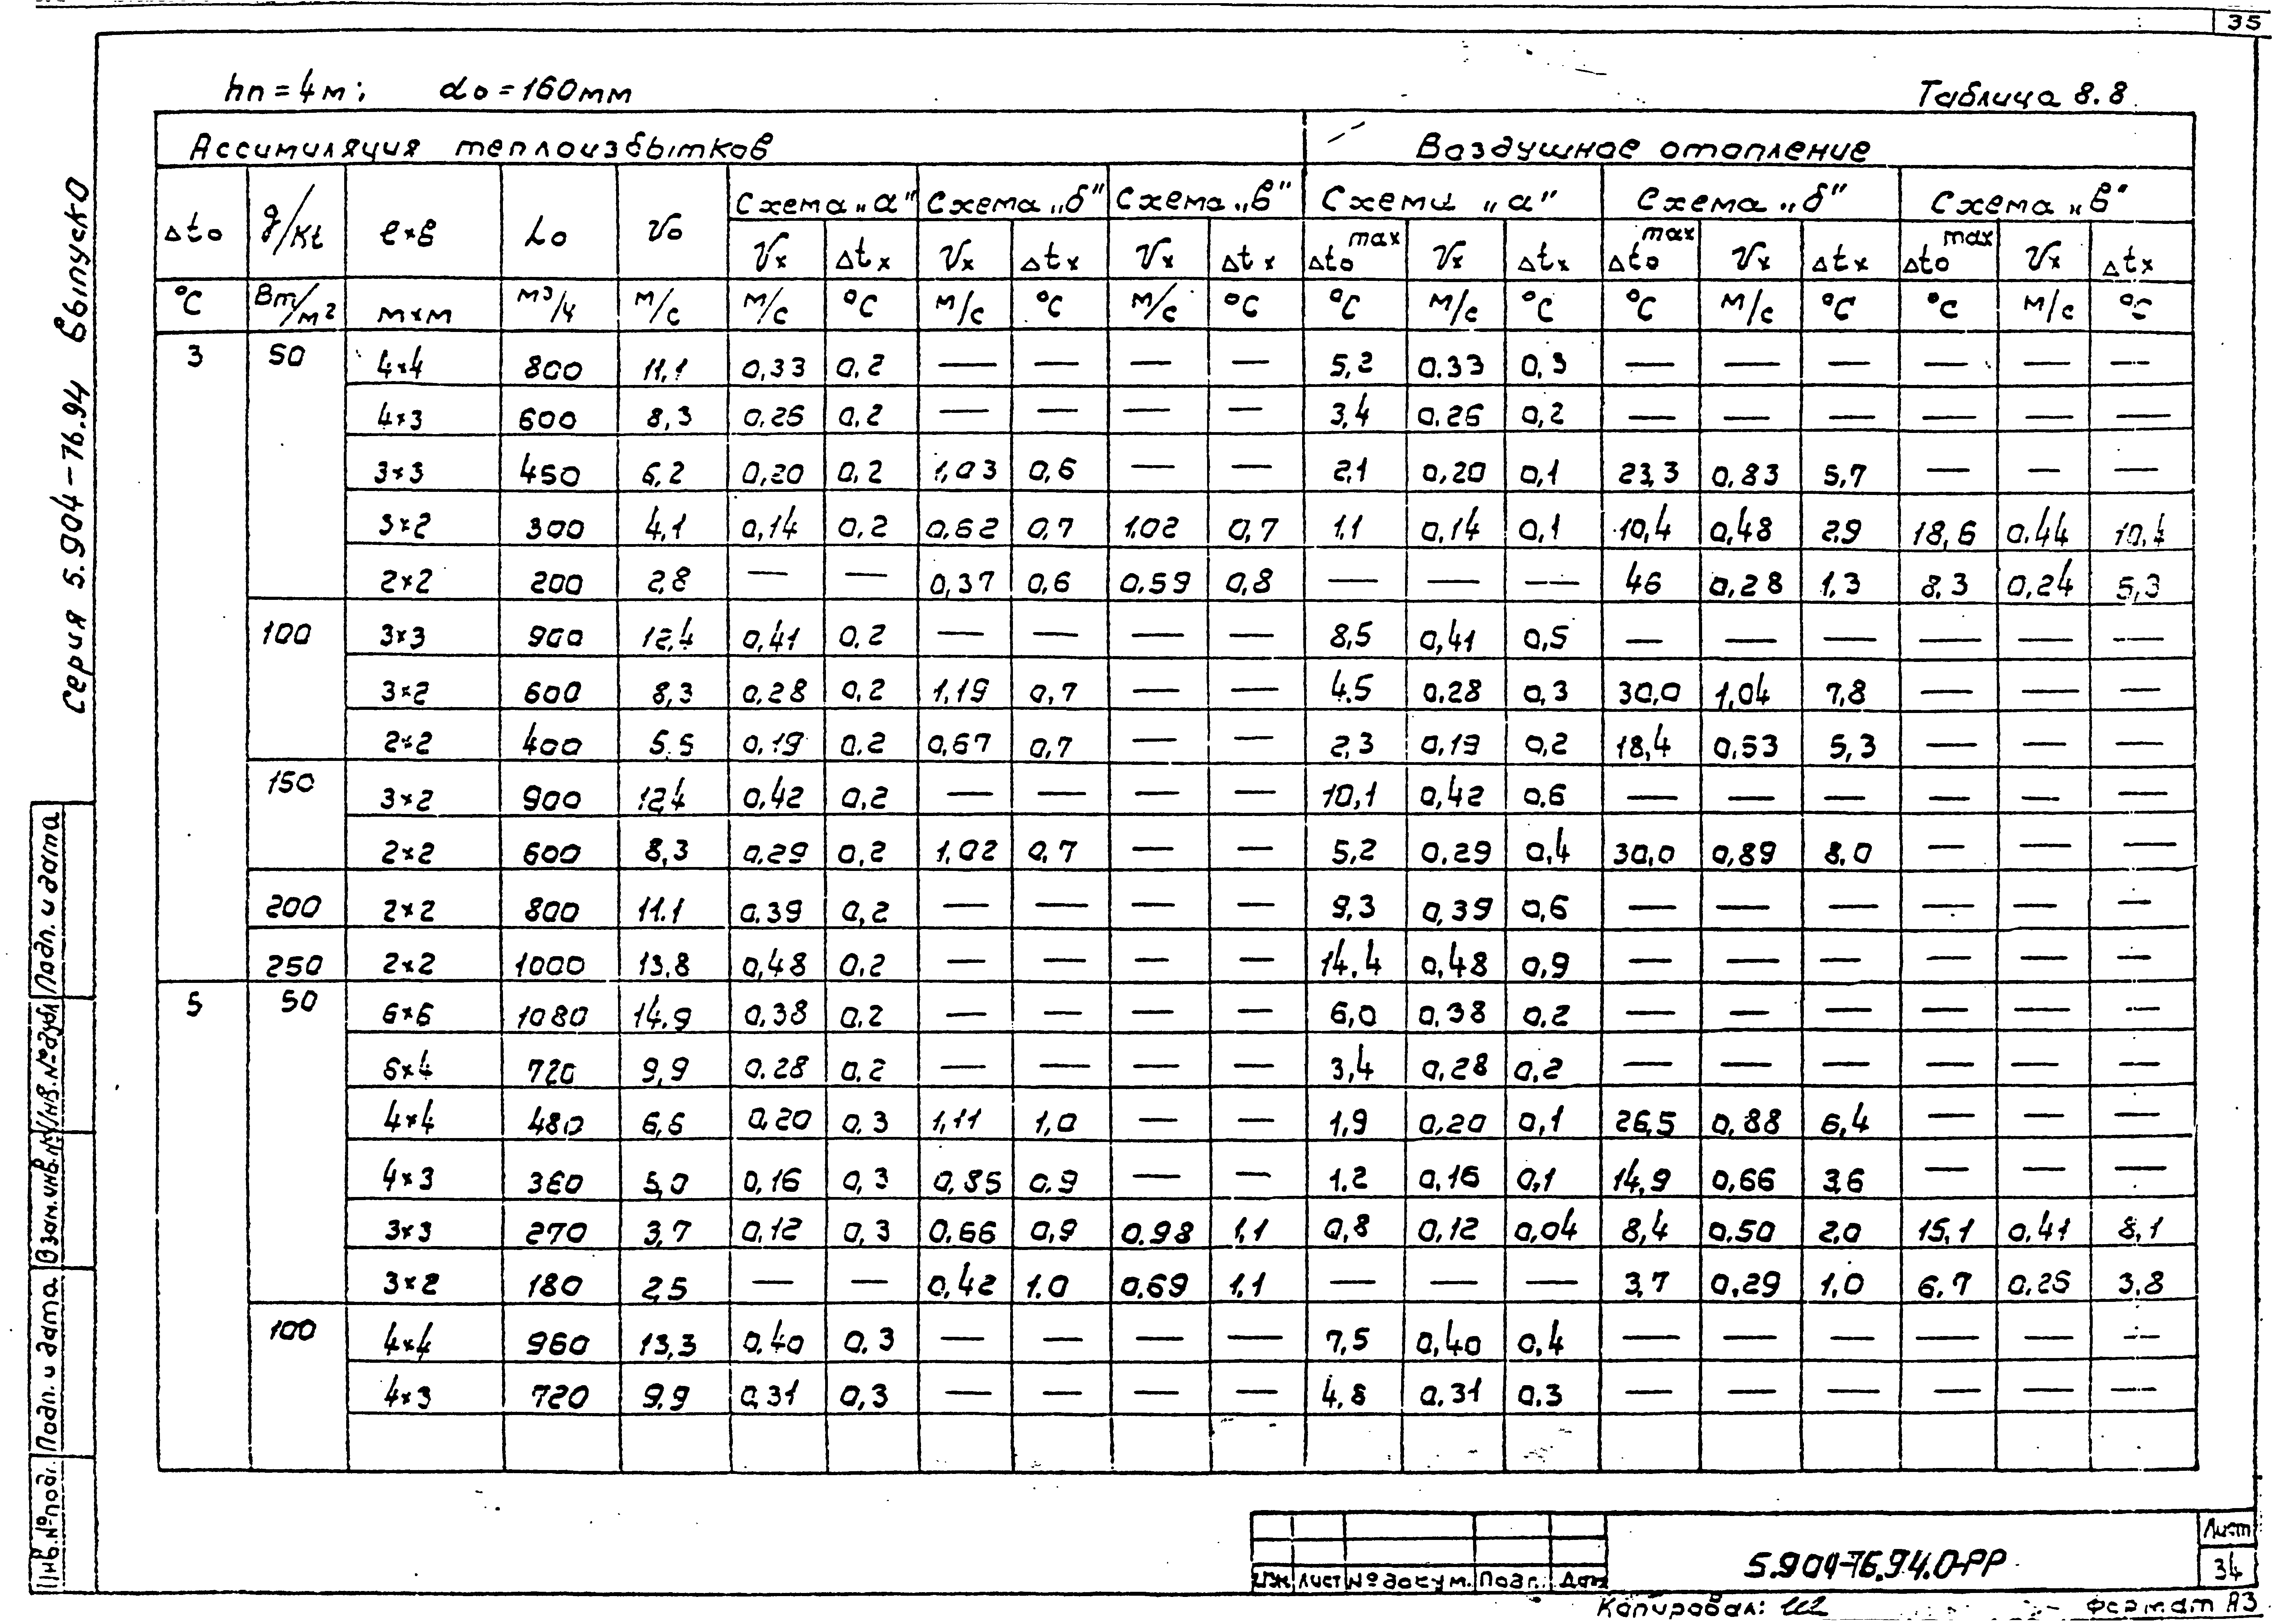 35
hп = 4м; do = 160мм
Таблица 8.8
Ассимиляция теплоизбытков Воздушное отопление
Δto g/Kt ℓ×в Lo Vo Схема „а" Схема „б" Схема „в" Схема „а" Схема „б" Схема „в"
Vx Δtx Vx Δtx Vx Δtx Δto max Vx Δtx Δto max Vx Δtx Δto max Vx Δtx
°C Вт/м² м×м м³/ч м/с м/с °C м/с °C м/с °C °C м/с °C °C м/с °C °C м/с °C
3 50 4×4 800 11,1 0,33 0,2 — — — — 5,2 0.33 0,3 — — — — — —
4×3 600 8,3 0,26 0,2 — — — — 3,4 0.26 0,2 — — — — — —
3×3 450 6,2 0,20 0,2 1,03 0,6 — — 2,1 0,20 0,1 23,3 0,83 5,7 — — —
3×2 300 4,1 0,14 0,2 0,62 0,7 1,02 0,7 1,1 0,14 0,1 10,4 0,48 2,9 18,6 0,44 10,4
2×2 200 2,8 — — 0,37 0,6 0,59 0,8 — — — 46 0,28 1,3 8,3 0,24 5,3
100 3×3 900 12,4 0,41 0,2 — — — — 8,5 0,41 0,5 — — — — — —
3×2 600 8,3 0,28 0,2 1,19 0,7 — — 4,5 0,28 0,3 30,0 1,04 7,8 — — —
2×2 400 5.5 0,19 0,2 0,67 0,7 — — 2,3 0,19 0,2 18,4 0,53 5,3 — — —
150 3×2 900 12,4 0,42 0,2 — — — — 10,1 0,42 0,6 — — — — — —
2×2 600 8,3 0,29 0,2 1,02 0,7 — — 5,2 0,29 0,4 30,0 0,89 8,0 — — —
200 2×2 800 11.1 0.39 0,2 — — — — 9,3 0,39 0,6 — — — — — —
250 2×2 1000 13,8 0,48 0,2 — — — — 14,4 0,48 0,9 — — — — — —
5 50 6×6 1080 14,9 0,38 0,2 — — — — 6,0 0,38 0,2 — — — — — —
6×4 720 9,9 0.28 0,2 — — — — 3,4 0,28 0,2 — — — — — —
4×4 480 6,6 0,20 0,3 1,11 1,0 — — 1,9 0,20 0,1 26,5 0,88 6,4 — — —
4×3 360 5,0 0,16 0,3 0,85 0,9 — — 1.2 0,16 0,1 14,9 0,66 3,6 — — —
3×3 270 3,7 0,12 0,3 0,66 0,9 0,98 1,1 0,8 0,12 0,04 8,4 0,50 2,0 15,1 0,41 8,1
3×2 180 2,5 — — 0,42 1,0 0,69 1,1 — — — 3,7 0,29 1,0 6,7 0,25 3,8
100 4×4 960 13,3 0,40 0,3 — — — — 7,5 0,40 0,4 — — — — — —
4×3 720 9,9 0,31 0,3 — — — — 4,8 0,31 0,3 — — — — — —
Серия 5.904-76.94 выпуск 0
Подп. и дата
Инв.№дубл.
Взам.инв.№
Подп. и дата
Инв.№подл.
Изм Лист № докум. Подп. Дата
5.904-76.94.0-РР
Лист
34
Копировал:
Формат А3